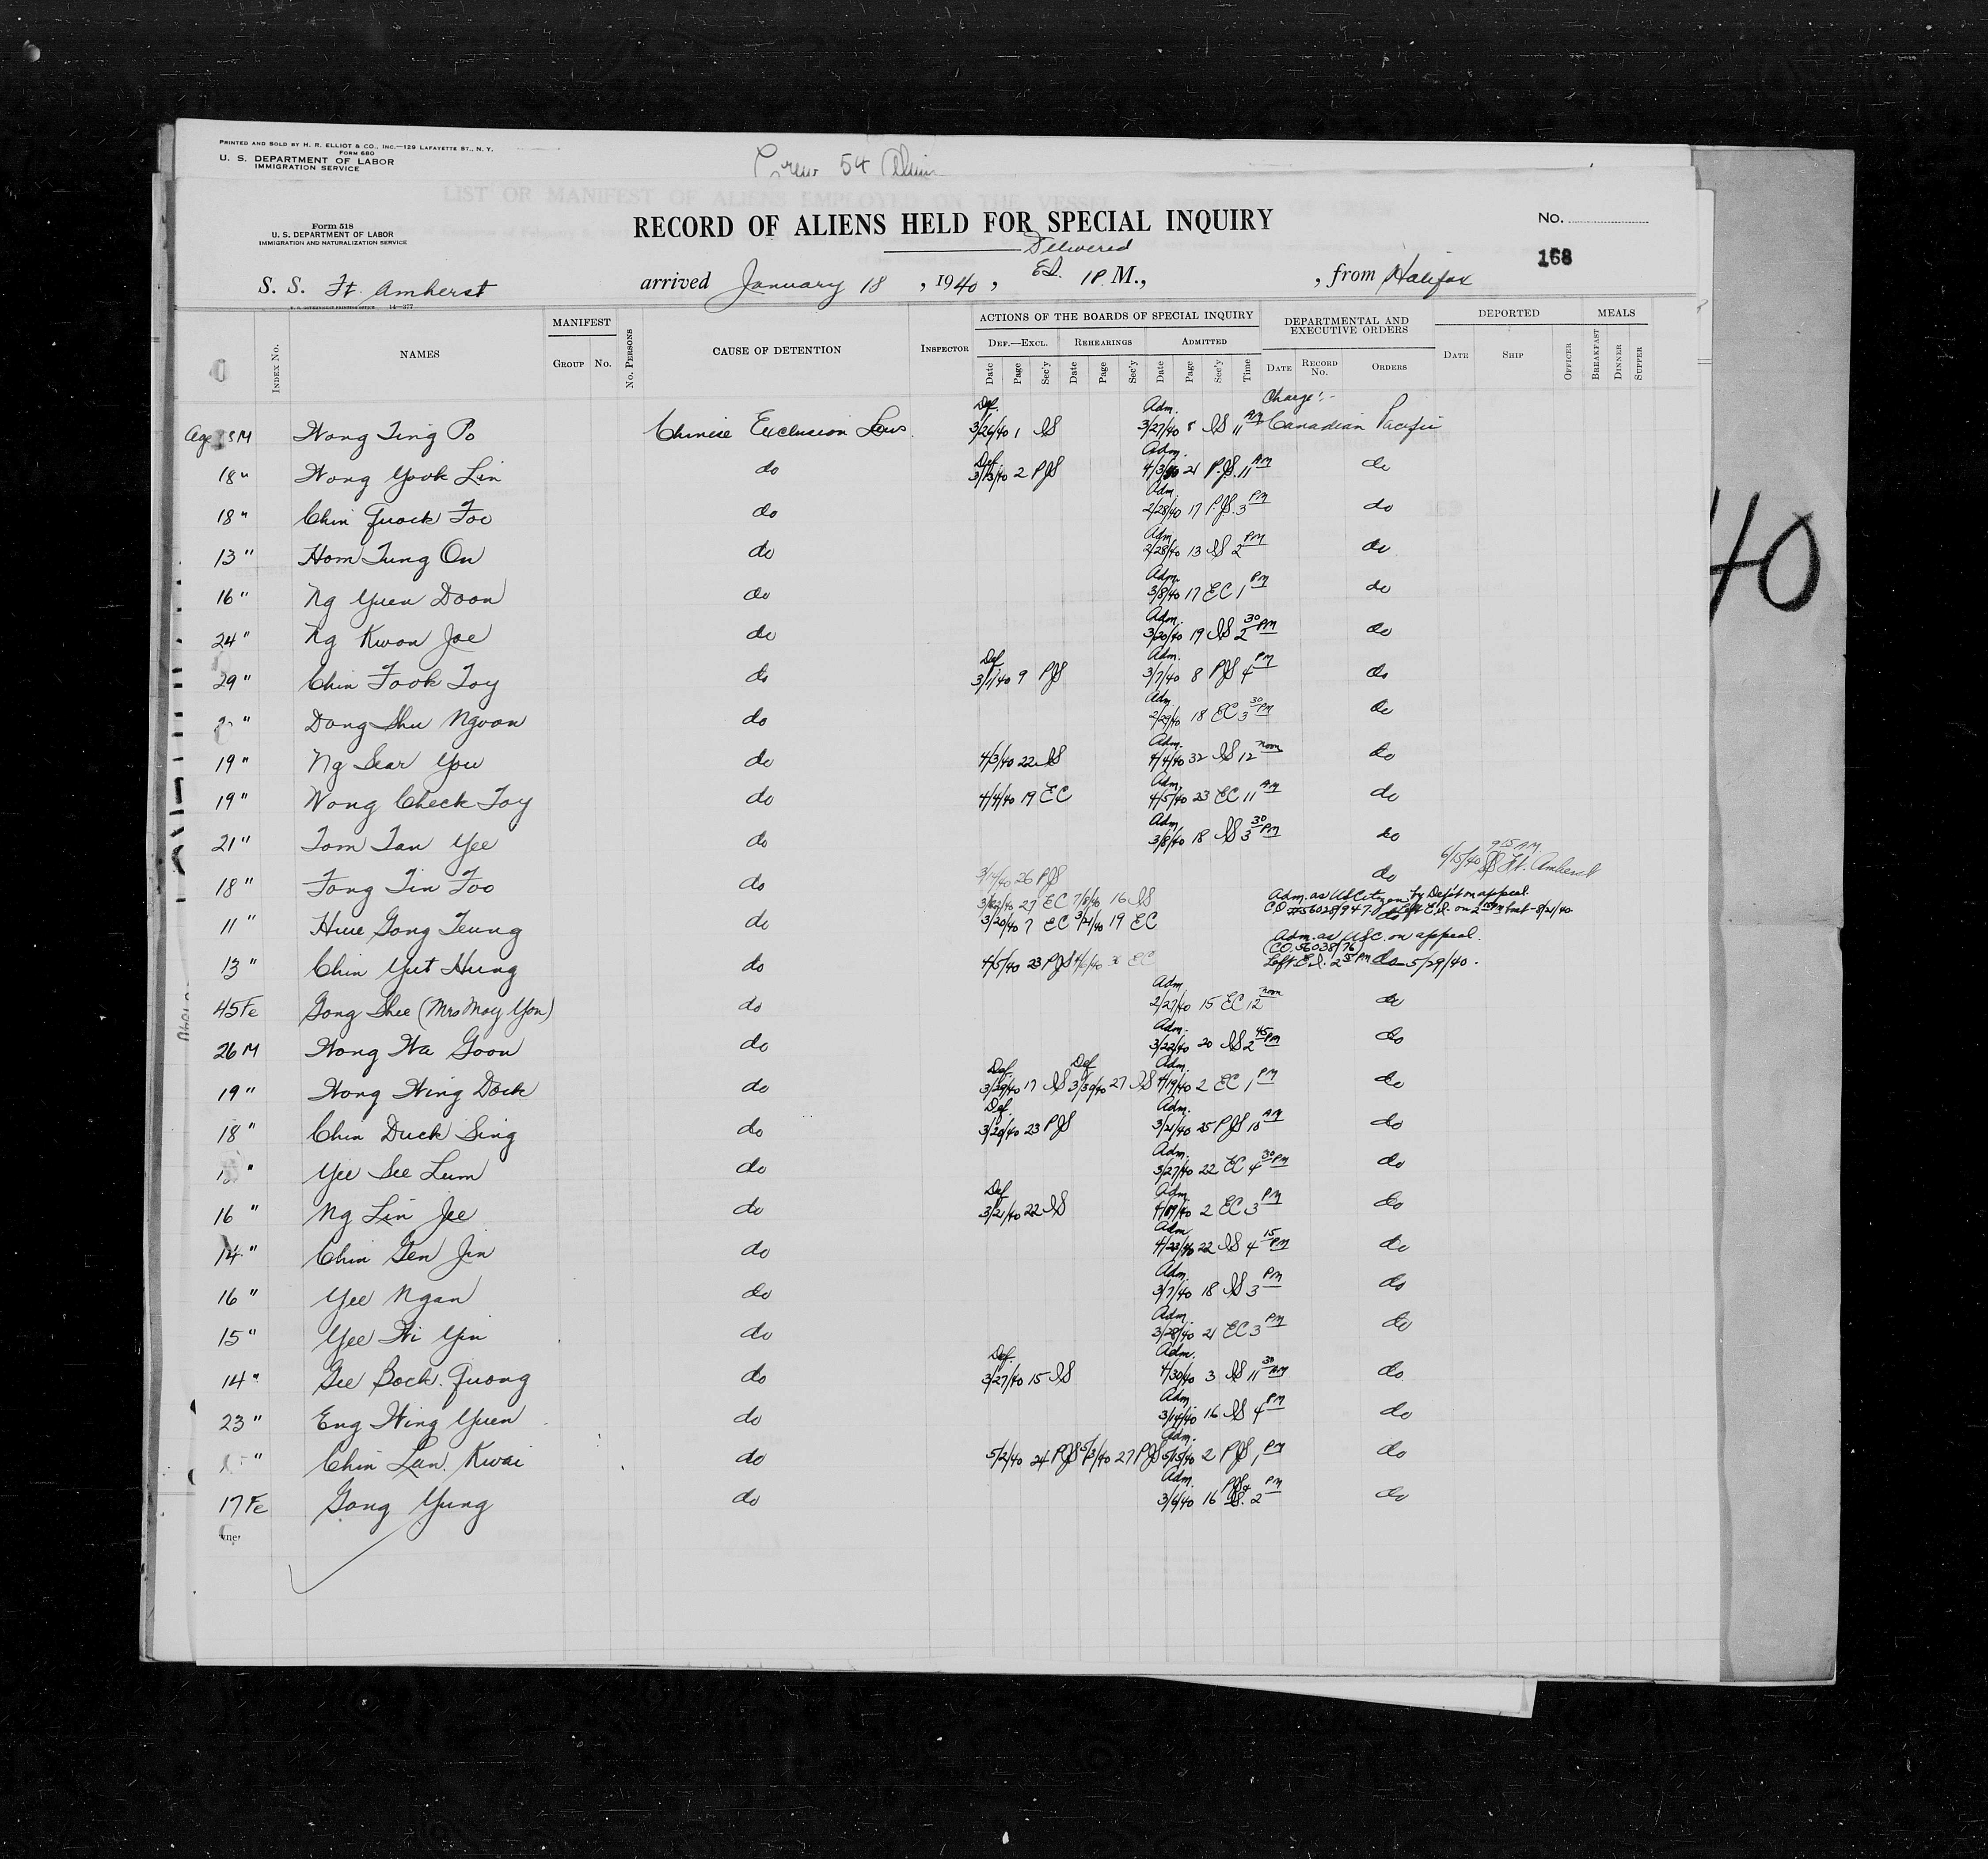 PRINTED AND SOLD BY H. R. ELLIOT & CO., INC.—129 LAFAYETTE ST., N. Y.
FORM 680
U. S. DEPARTMENT OF LABOR
IMMIGRATION SERVICE
Crew 54
LIST OR MANIFEST OF ALIENS EMPLOYED ON THE VESSEL
Form 518
U. S. DEPARTMENT OF LABOR
IMMIGRATION AND NATURALIZATION SERVICE
RECORD OF ALIENS HELD FOR SPECIAL INQUIRY
No.
168
Delivered
S. S. Ft. Amherst arrived January 18, 1940, E.I. 1 P. M., , from Halifax
U. S. GOVERNMENT PRINTING OFFICE 14—377
INDEX No. NAMES MANIFEST GROUP No. No. PERSONS CAUSE OF DETENTION INSPECTOR ACTIONS OF THE BOARDS OF SPECIAL INQUIRY DEF.—EXCL. REHEARINGS ADMITTED DEPARTMENTAL AND EXECUTIVE ORDERS DEPORTED MEALS
Date Page Sec'y Date Page Sec'y Date Page Sec'y Time DATE RECORD No. ORDERS DATE SHIP OFFICER BREAKFAST DINNER SUPPER
Charge:-
Age M Wong Ting Po Chinese Exclusion Laws Def. 3/26/40 1 IS Adm. 3/27/40 IS 11 AM Canadian Pacific
18 " Wong Yook Lin do Def. 3/13/40 2 PJS Adm. 4/3/40 21 P.J.S. 11 AM do
18 " Chin Quock Foo do Adm. 2/28/40 17 P.J.S. 3 PM do
13 " Hom Tung On do Adm. 2/28/40 13 IS 2 PM do
16 " Ng Yuen Doon do Adm. 3/8/40 17 EC 1 PM do
24 " Ng Kwon Joe do Adm. 3/20/40 19 IS 2 30 PM do
29 " Chin Fook Toy do Def 3/1/40 9 PJS Adm. 3/7/40 8 PJS 4 PM do
" Dong Shu Ngoon do Adm. 2/29/40 18 EC 3 30 PM do
19 " Ng Sear You do 4/3/40 22 IS Adm. 4/4/40 32 IS 12 noon do
19 " Wong Check Toy do 4/4/40 19 EC Adm. 4/5/40 23 EC 11 AM do
21 " Tom Tan Yee do Adm. 3/8/40 18 IS 3 30 PM do
18 " Fong Tin Foo do 26 PJS do 6/15/40 9 15 A.M. SS Ft. Amherst
27 EC 7/8/40 16 IS Adm. as US Citizen by Dep't on appeal.
11 " Huie Gong Teung do 3/20/40 7 EC 3/21/40 19 EC CO #56028/947. do Left E.I. on 2 boat - 8/21/40
Adm. as U.S.C. on appeal.
(CO. 56038/76)
13 " Chin Yut Hung do 4/5/40 23 PJS EC Left E.I. 2 PM do 5/29/40.
45 Fe Gong Shee (Mrs Moy Yon) do Adm. 2/27/40 15 EC 12 noon do
26 M Wong Wa Goon do Adm. 3/22/40 20 IS 2 45 PM do
19 " Wong Wing Dock do Def. 3/29/40 17 IS Def 3/30/40 27 IS Adm. 4/19/40 2 EC 1 PM do
18 " Chin Duck Sing do Def. 3/20/40 23 PJS Adm. 3/21/40 25 PJS 10 AM do
" Yee See Lum do Adm. 3/27/40 22 EC 4 30 PM do
16 " Ng Lin Jee do Def 3/21/40 22 IS Adm. 4/19/40 2 EC 3 PM do
14 " Chin Gen Jin do Adm. 4/23/40 22 IS 4 15 PM do
16 " Yee Ngan do Adm. 3/7/40 18 IS 3 PM do
15 " Yee Wi Yin do Adm. 3/28/40 21 EC 3 PM do
14 " Gee Bock Quong do Def. 3/27/40 15 IS Adm. 4/30/40 3 IS 11 30 AM do
23 " Eng Wing Yuen do Adm. 3/14/40 16 IS 4 PM do
" Chin Lun Kwai do 5/2/40 24 PJS 5/3/40 27 PJS Adm. 5/15/40 2 PJS 1 PM do
17 Fe Gong Yung do Adm. 3/6/40 16 PJS & IS. 2 PM do
40